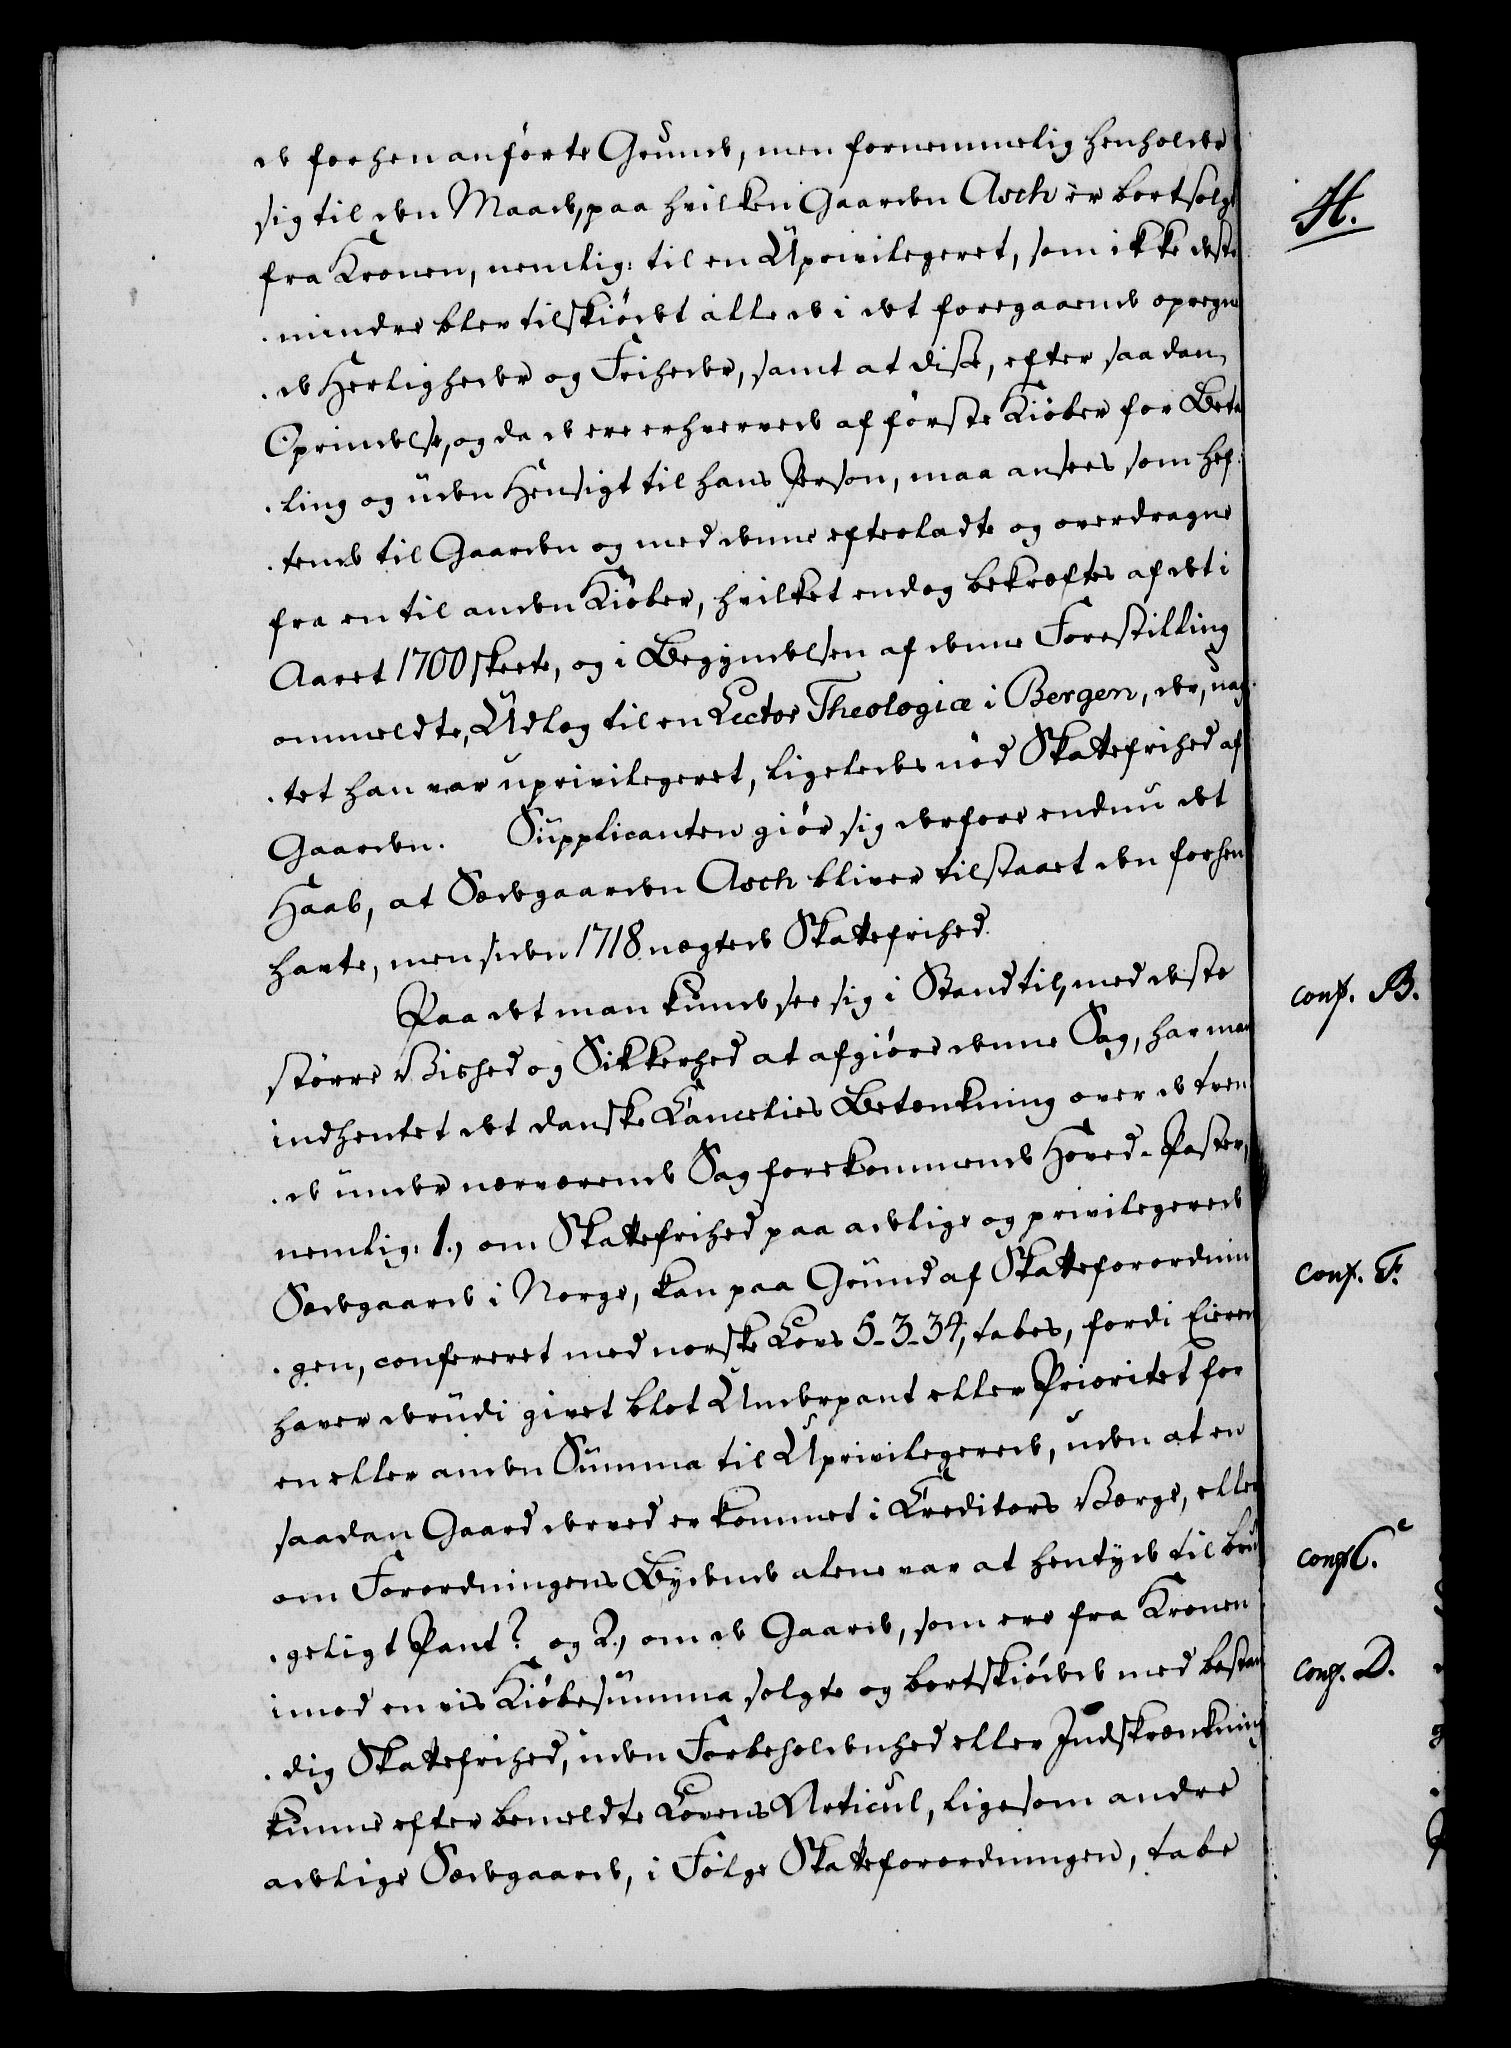 de forhen anførte Grunde, men fornemmelig henholder
sig til den Maade, paa hvilken Gaarden Asch er bortsolgt
fra Kronen, nemlig: til en Uprivilegeret, som ikke deste
mindre blev tilskiødet alle de i det foregaaende opregne
de Herligheder og Friheder, samt at disse, efter saadan
Oprindelse, og da de ere erhvervede af første Kiøber for Beta
ling og uden Hensigt til hans Person, maa ansees som hef
tende til Gaarden og med denne efterladte og overdragne
fra en til anden Kiøber, hvilket endog bekræftes af det i
Aaret 1700 skeete, og i Begyndelsen af denne Forestilling
ommeldte, Udlæg til en Lector Theologiæ i Bergen, der, uag
tet han var uprivilegeret, ligeledes nød Skattefrihed af
Gaarden. Supplicanten giør sig derfore endnu det
Haab, at Sædegaarden Asch bliver tilstaaet den forhen
havte, men siden 1718 nægtede Skattefrihed.
Paa det man kunde see sig i Stand til, med deste
større Vished og Sikkerhed at afgiøre denne Sag, har man
indhentet det danske Cancelies Betænkning over de tven
de under nærværende Sag forekommende Hoved-Poster,
nemlig: 1., om Skattefrihed paa adelige og privilegerede
Sædegaarde i Norge, kan paa Grund af Skatteforordnin
gen, confereret med norske Lovs 5-3-34, tabes, fordi Eieren
haver derudi givet blot Underpant eller Prioritet for
en eller anden Summa til Uprivilegerede, uden at en
saadan Gaard derved er kommet i Creditors Værge, eller
om Forordningens Bydende alene var at hentyde til bru
geligt Pant? og 2., om de Gaarde, som ere fra Kronen
imod en vis Kiøbesumma solgte og bortskiødede med bestan
dig Skattefrihed, uden Forbeholdenhed eller Indskrænkning
kunne efter bemeldte Lovens Articul, ligesom andre
adelige Sædegaarde, i Følge Skatteforordningen, tabe
H.
conf. B.
conf. F.
conf. C.
conf. D.